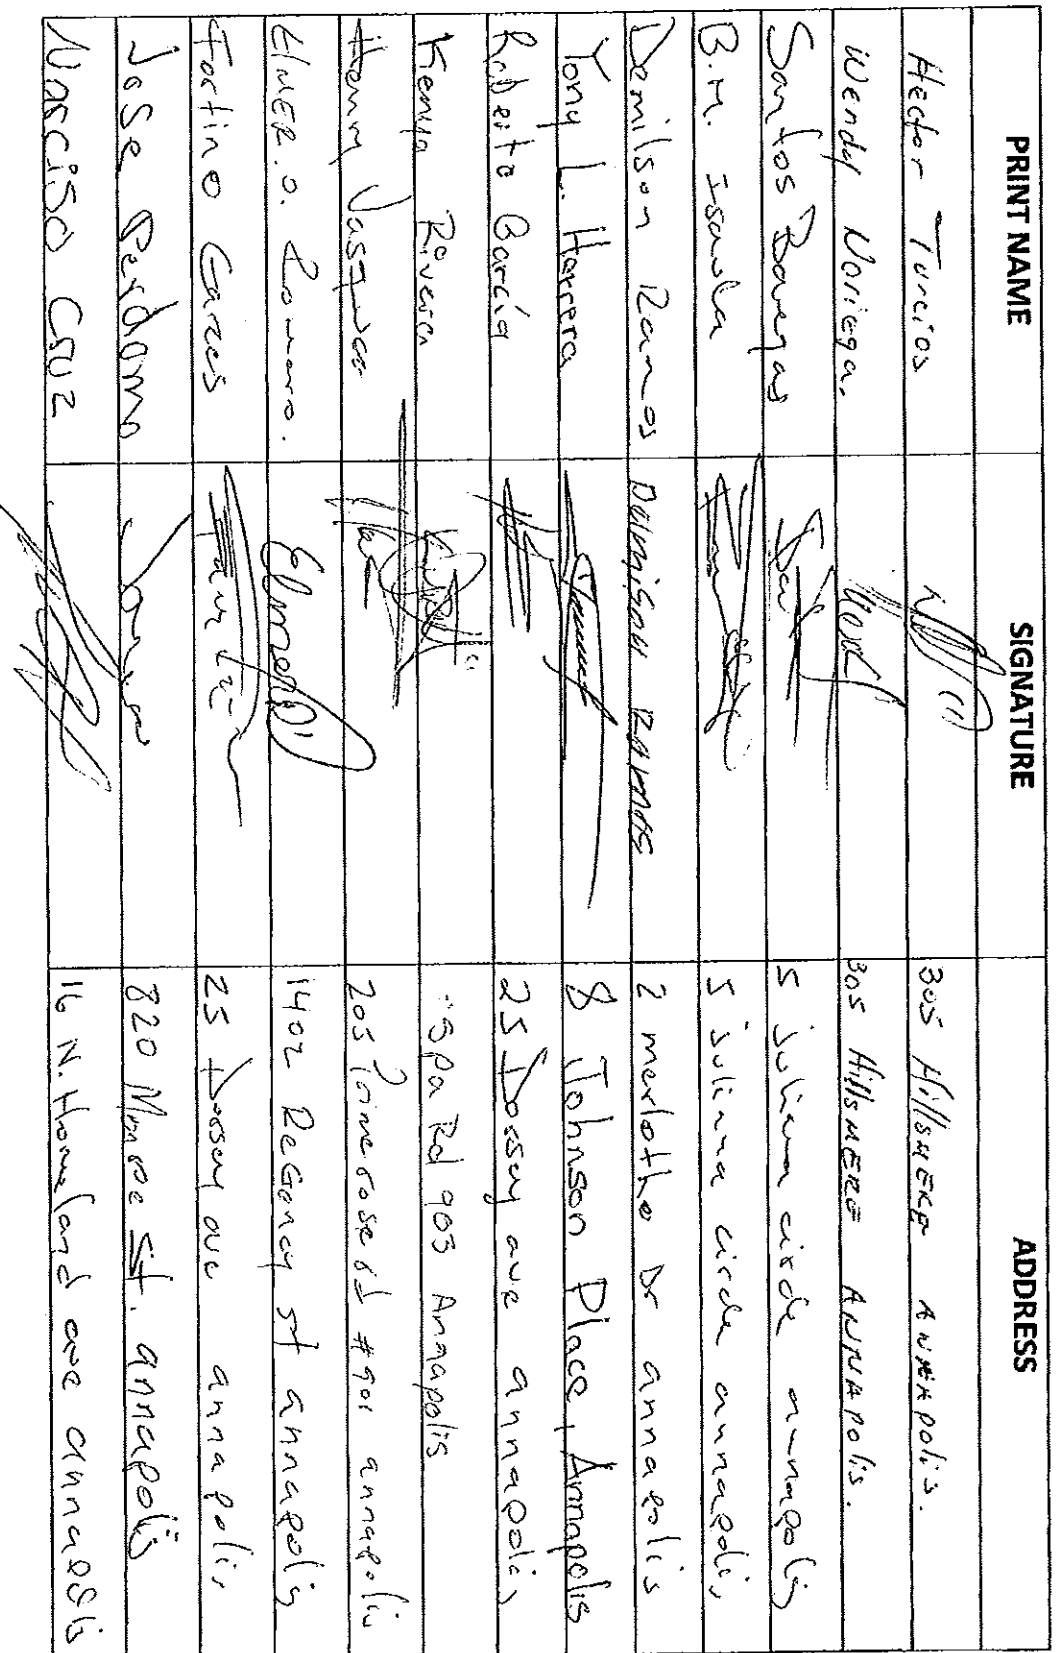 PRINT NAME SIGNATURE ADDRESS
Hector Turcios 305 Hillsmere Annapolis.
Wendy Noriega. 305 HillsMERE ANNAPolis.
Santos Banegas 5 juliana circle annapolis
B.M. Isaula 5 juliana circle annapolis
Demilson Ramos DELMISON RAMOS 2 merlotho Dr annapolis
Yony L. Herrera 8 Johnson Place, Annapolis
Roberto García 25 Dorsey ave annapolis
Kenya Rivera Spa Rd 903 Annapolis
Henry Vasquez 205 Primerose rd #901 annapolis
ElMER.O. Romero. Elmer 1402 ReGency st annapolis
Fortino Garces 25 Dorsey ave annapolis
Jose Perdomo 820 Monroe St. annapolis
Narciso Cruz 16 N. Homeland ave annapolis